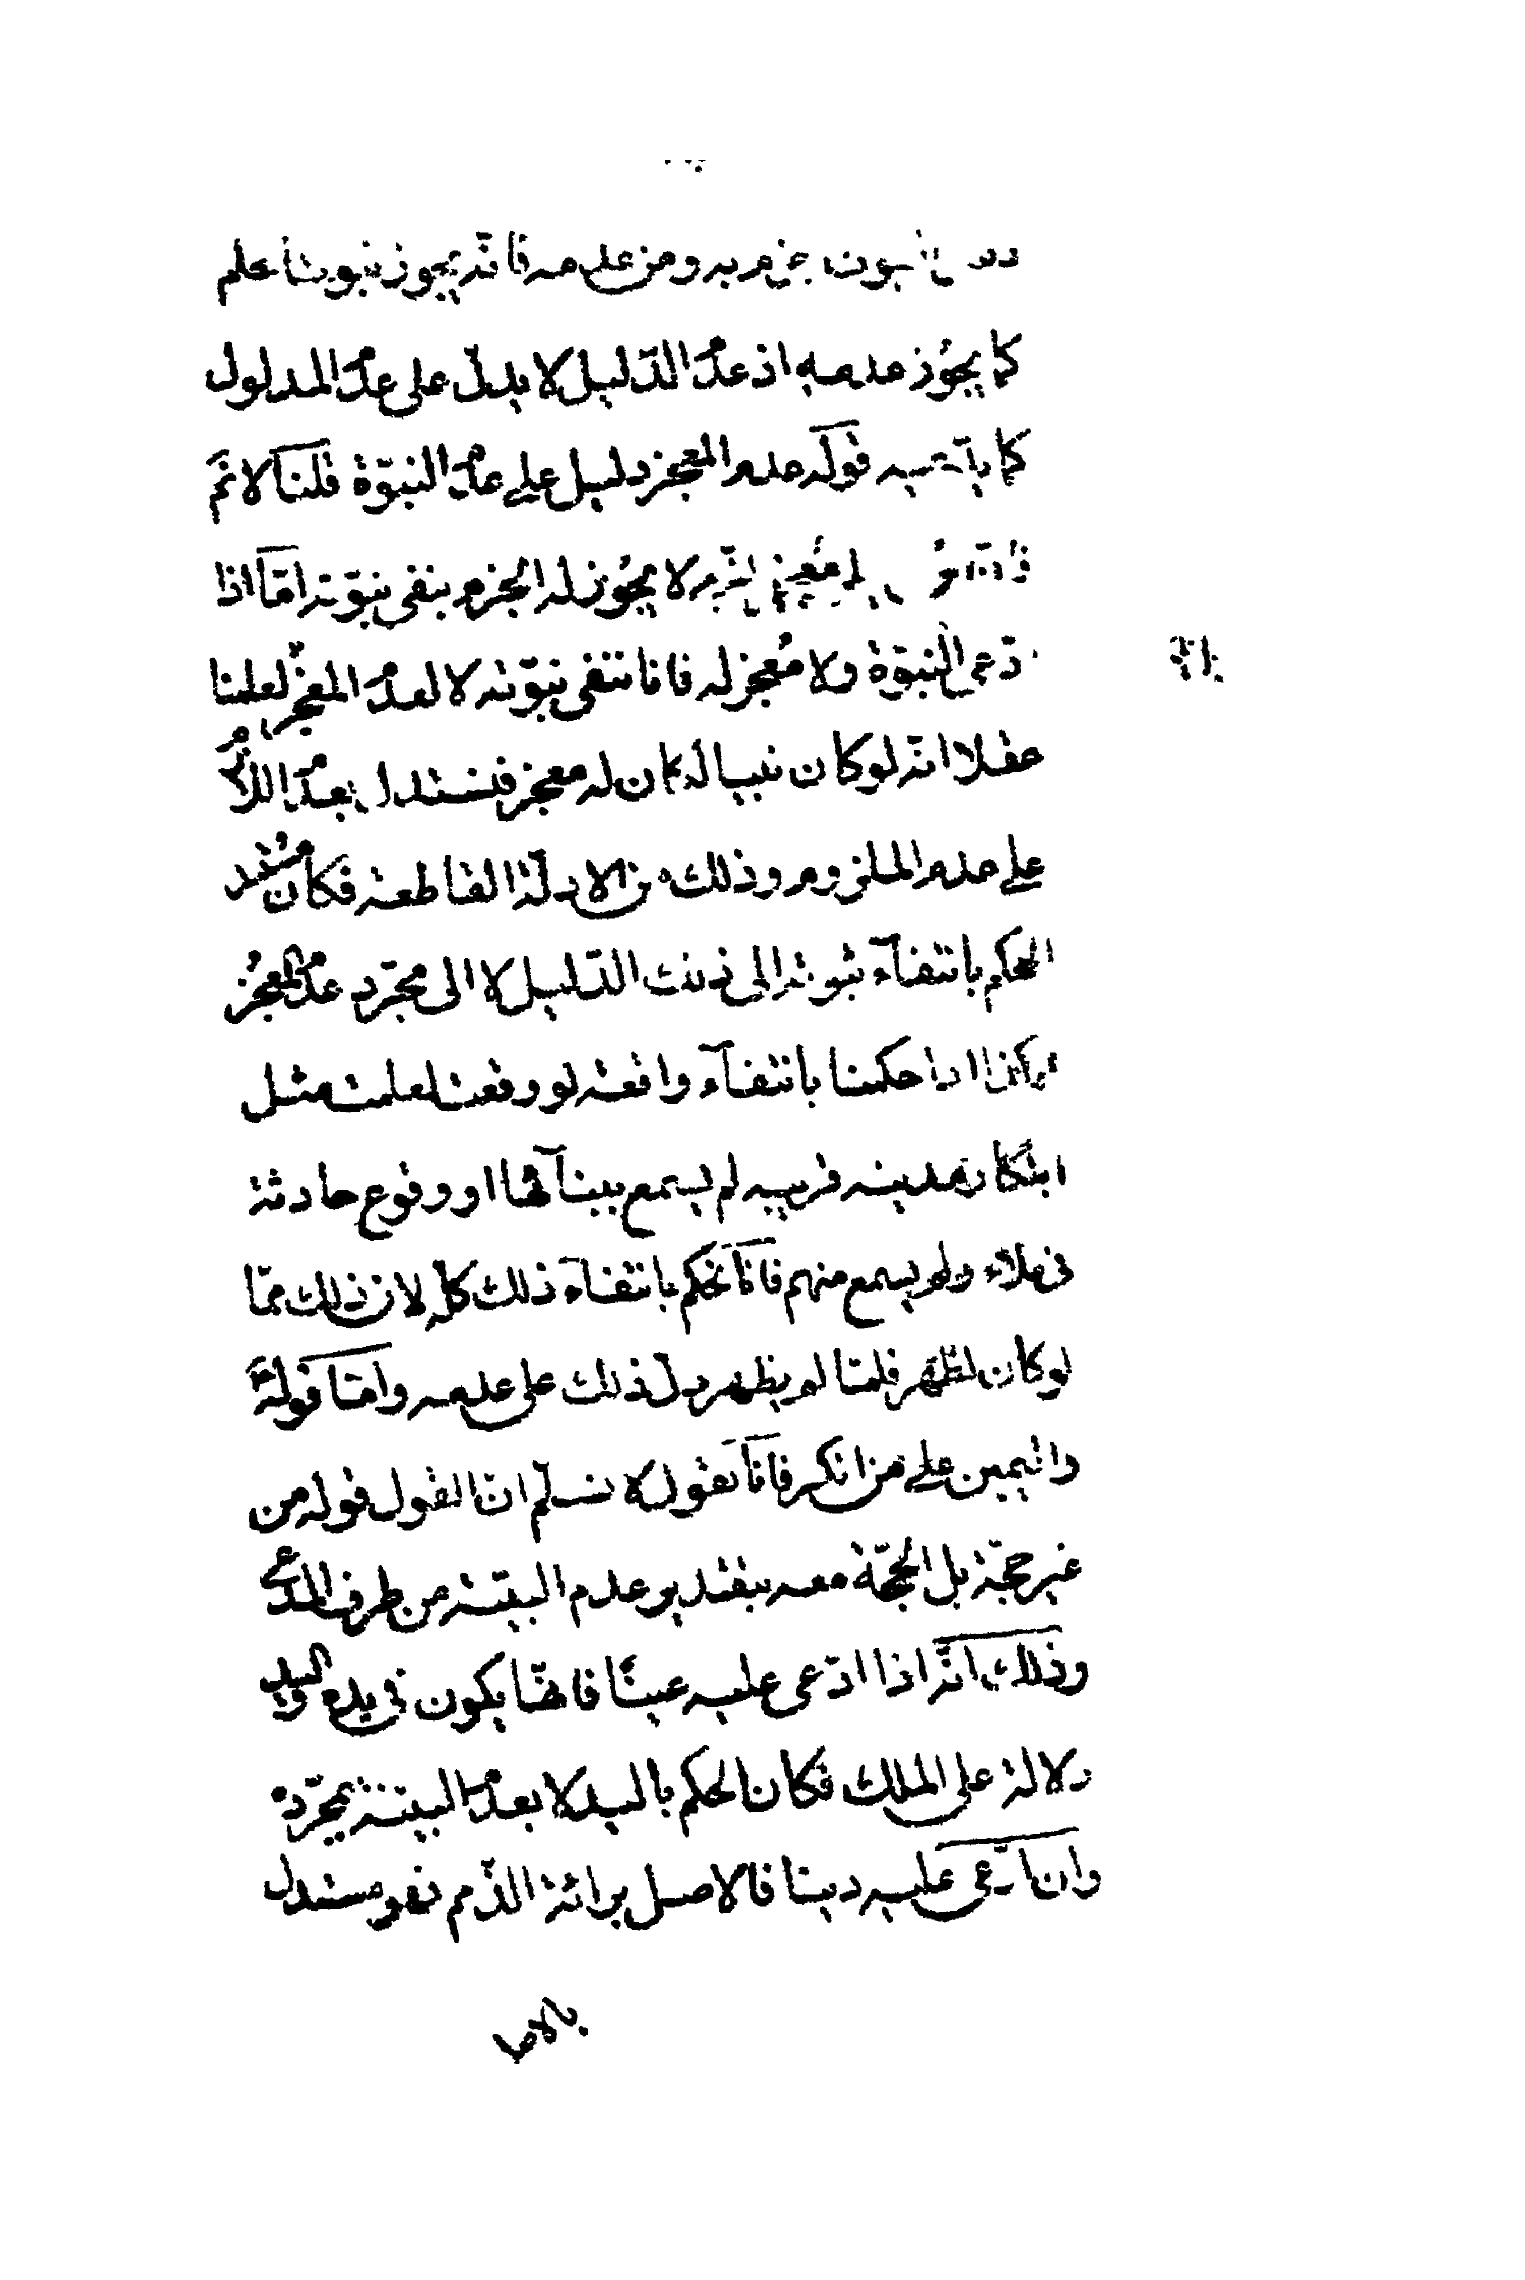 جزم به ومن علمه فانّه يجوز نبوتنا علم
كما يجوز عدمه اذ عدم الدّليل لا يدلّ على عدم المدلول
كما قوله عدم المعجز دليل على عدم النبوّة قلنا لا نم
لا يجوز له الجزم بنفى نبوّته امّا اذا
ادّعى النبوّة ولا معجز له فانا ننفى نبوّته لا لعدم المعجز لعلمنا
عقلا انّه لو كان نبيا لكان له معجز فنستدل بعدم اللازم
على عدم الملزوم وذلك من الادلّة القاطعة فكان مستند
الحكم بانتفآء ثبوته الى ذلك الدّليل لا الى مجرّد عدم المعجز
وكذا اذا حكمنا بانتفآء واقعة لو وقعت لعلمت مثل
ابتكار مدينة قريبة لم يسمع ببنآئها او وقوع حادثة
فى ملاء ولم يسمع منهم فانّا نحكم بانتفآء ذلك كلّه لان ذلك ممّا
لو كان لظهر فلمّا لم يظهر دلّ ذلك على عدمه وامّا قوله
واليمين على من انكر فانّا نقول لا نسلّم انّ القول قوله من
غير حجّة بل الحجّة معه بتقدير عدم البيّنة من طرف المدعى
وذلك انّه اذا ادّعى عليه عينًا فانّها يكون فى يده واليد
دلالة على الملك فكان الحكم باليد لا بعدم البيّنة بمجرّده
وان ادّعى عليه دينا فالاصل برائة الذّمم فهو مستدل
بالاصل